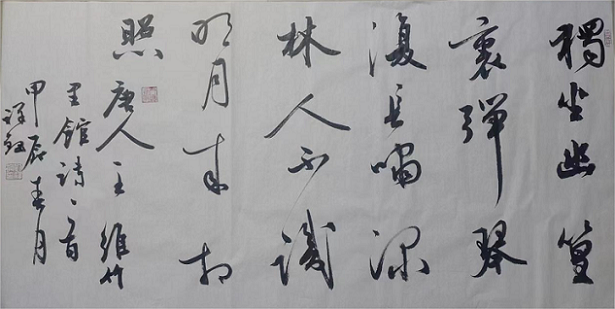 獨坐幽篁
裏彈琴
復長嘯深
林人不識
明月来相
照唐人王維竹
里館詩一首
甲辰春月